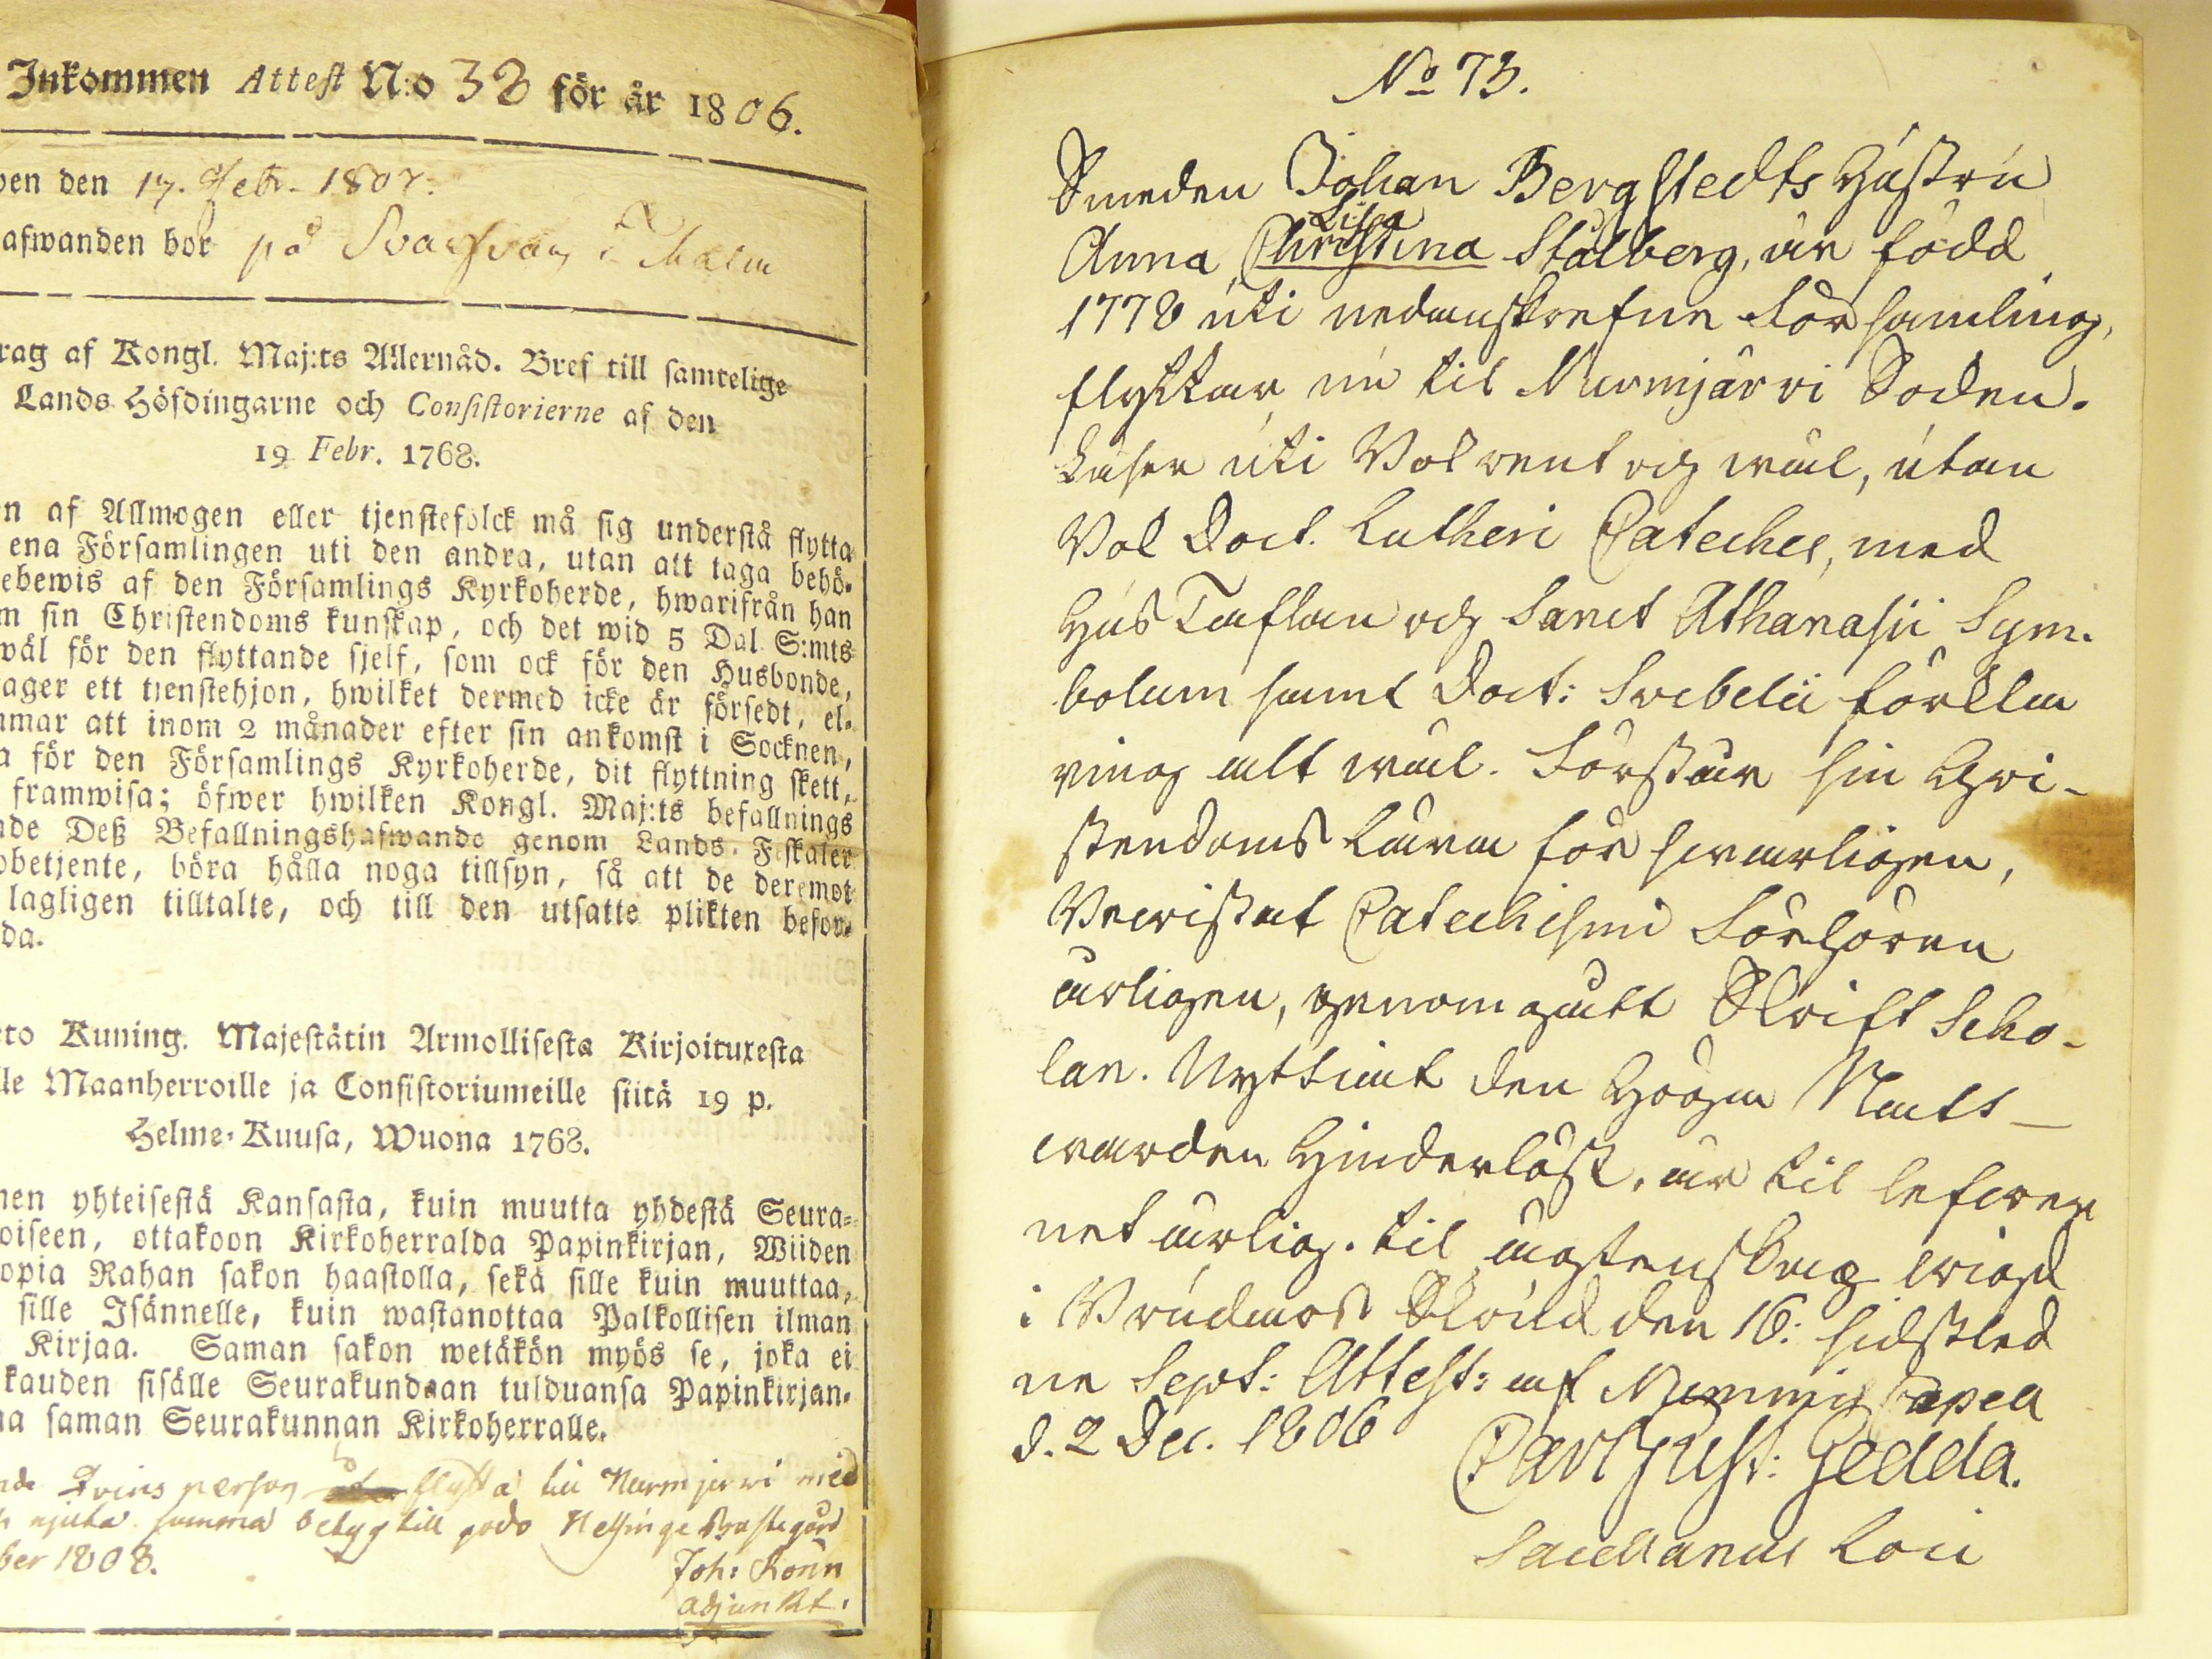 Inkommen Attest N:o 38 för år 1806.
den 17. Febr. 1807.
afwanden bor på i Malm
rag af Kongl. Maj:ts Allernåd. Bref till samtelige
Lands Höfdingarne och Consistorierne af den
19 Febr. 1768.
n af Allmogen eller tjenstefolck må sig understå flytta
ena Församlingen uti den andra, utan att taga behö-
ebewis af den Församlings Kyrkoherde, hwarifrån han
m sin Christendoms kunskap, och det wid 5 Dal. S:mts
wäl för den flyttande sjelf, som ock för den Husbonde,
ager ett tjenstehjon, hwilket dermed icke är försedt, el-
mmar att inom 2 månader efter sin ankomst i Socknen,
a för den Församlings Kyrkoherde, dit flyttning skett,
framwisa; öfwer hwilken Kongl. Maj:ts befallnings
de Deß Befallningshafwande genom Lands-Fiskaler
betjente, böra hålla noga tillsyn, så att de deremot
lagligen tilltalte, och till den utsatte plikten befor-
da.
to Kuning. Majestätin Armollisesta Kirjoituxesta
lle Maanherroille ja Consistoriumeille siitä 19 p.
Helme-Kuusa, Wuona 1768.
nen yhteisestä Kansasta, kuin muutta yhdestä Seura-
oiseen, ottakoon Kirkoherralda Papinkirjan, Wiiden
opia Rahan sakon haastolla, sekä sille kuin muuttaa,
sille Isännelle, kuin wastanottaa Palkollisen ilman
Kirjaa. Saman sakon wetäkön myös se, joka ei
kauden sisälle Seurakundaan tulduansa Papinkirjan-
na saman Seurakunnan Kirkoherralle.
person flytta till Nurmjerwi med
njuta samma betyg till godo Helsinge Prästegård
ber 1808.
Joh: Rönn
adjunkt.
No 73.
Smeden Johan Bergstedts Hustru
Lisa
Anna Christina Stålberg, är född
1778 uti nedanskrefne Församling,
flyttar nu til Nurmjärvi Soken.
Läser uti Bok rent och wäl, utan
Bok Doct. Lutheri Cateches, med
HusTaflan och Sanct Athanasii Sym-
bolum samt Doct: Svebelii förkla
ring alt wäl. Förstår sin Chri-
stendoms Lära förswarligen,
Bewistat Catechismi Förhören
årligen, genomgått Skrift Scho-
lan. Nyttiat den Höga Natt-
warden Hinderlöst, är til lefwer
net ärlig. til ägtenskap wigd
i Brudwos Skrud den 16: sidstled
ne Sept: Attest: af
d. 2 Dec. 1806
Carl Gust: Gedda.
Sacellanus Loci